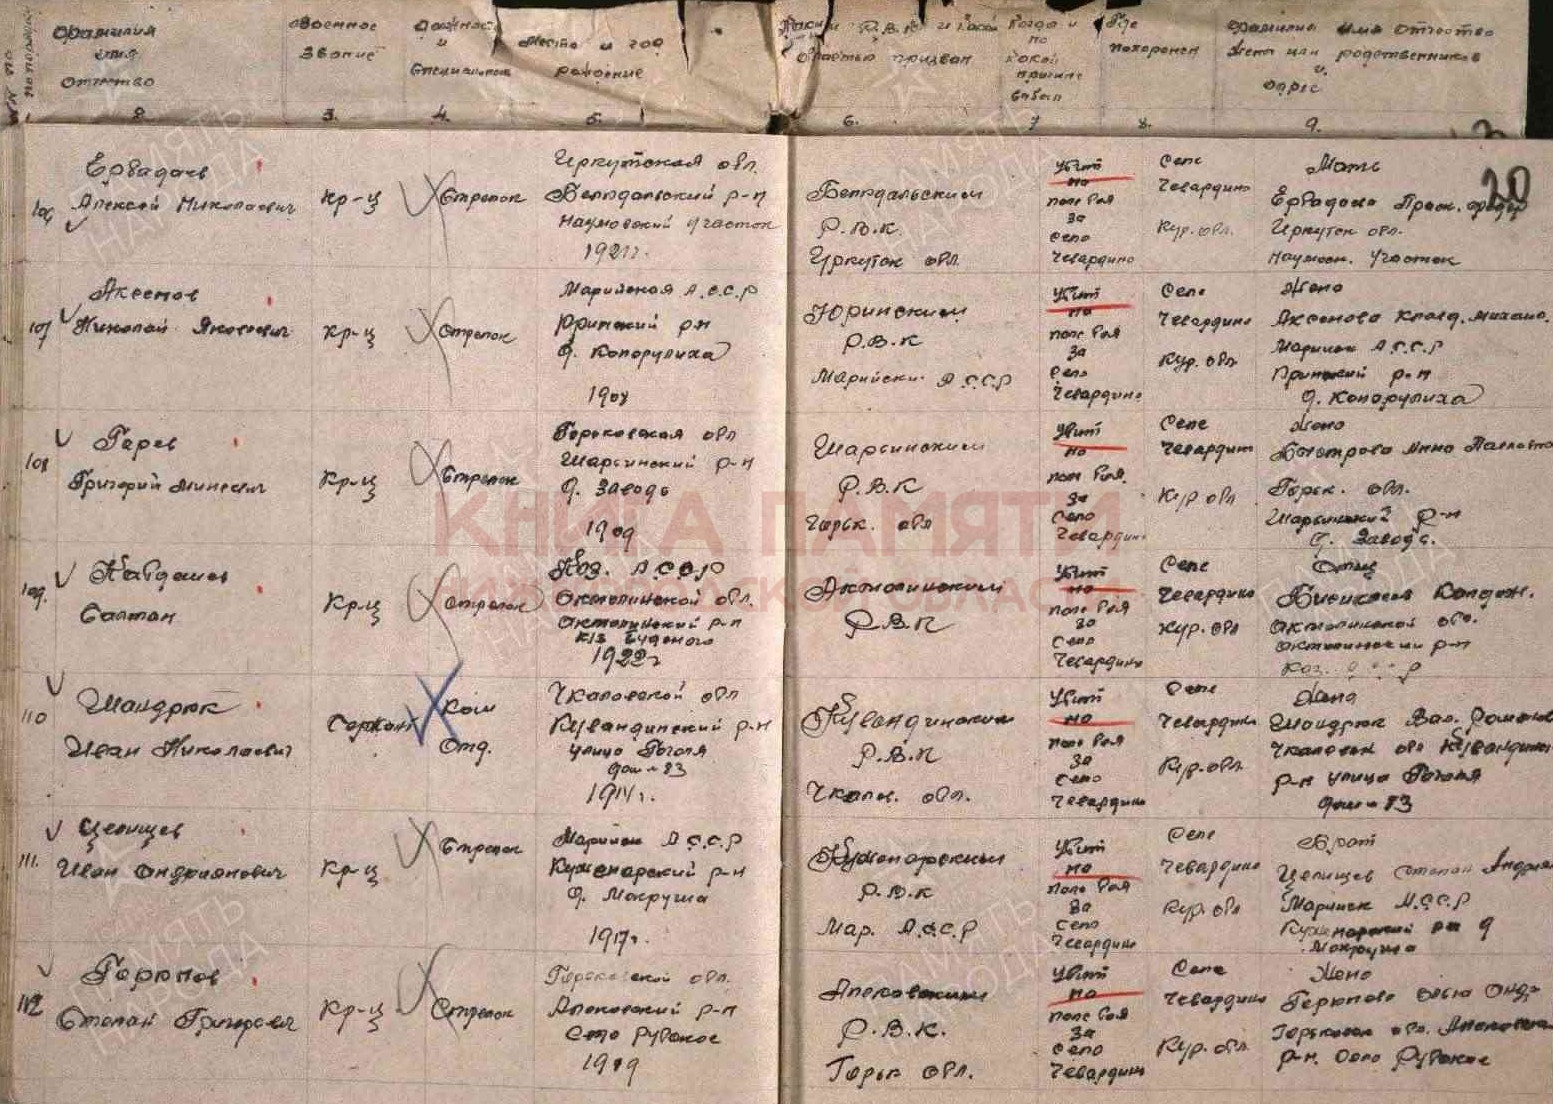 NN по порядку
Фамилия имя отчество
Военное звание
Должность и специальность
Место и год рождение
Каким Р.В.К. и какой областью призван
Когда и по какой причине выбыл
Где похоронен
Фамилия имя отчество жены или родственников и адрес
1. 2. 3. 4. 5. 6. 7 8. 9.
20
106
Алексей Николаевич
Кр-ц
Стрелок
Иркутская обл.
р-н
Наумовский участок
1921г.
Р.В.К.
Иркутск обл.
Убит на поле боя за село Чевардино
Селе Чевардино Кур. обл.
Мать
Иркутск обл.
Наумовск. участок
107
Аксенов
Николай Яковлевич
Кр-ц
Стрелок
Марийская А.С.С.Р
Юринский р-н
д. Копорулиха
1908
Юринским
Р.В.К
Марийск. А.С.С.Р
Убит на поле боя за село Чевардино
Селе Чевардино Кур. обл
Жена
Аксенова Клавд. Михайл.
Марийск А.С.С.Р
Юринский р-н
д. Копорулиха
108
Григорий
Кр-ц
Стрелок
Горьковская обл
р-н
д. Заводь
1909
Р.В.К
Горьк. обл
Убит на поле боя за село Чевардино
Селе Чевардино Кур обл
Жена
Анна Павловна
Горьк. обл.
р-н
д. Заводь
109.
Султан
Кр-ц
Стрелок
Каз. А.С.С.Р
Акмолинской обл.
Акмолинский р-н
к/з Буденого
1922г
Акмолинским
Р.В.К
Убит на поле боя за село Чевардино
Селе Чевардино Кур. обл
Отец
Акмолинской обл.
Акмолинский р-н
Каз. С.С.Р
110
Шандрюк
Иван Николаевич
Сержант
Ком Отд.
Чкаловской обл
Кувандинский р-н
улица Гоголя
дом-83
1911г.
Кувандинским
Р.В.К
Чкалов. обл.
Убит на поле боя за село Чевардино
Селе Чевардино Кур. обл.
Жена
Шандрюк Вал. Романов
Чкаловск обл Кувандинск
р-н улица Гоголя
дом-83
111.
Целищев
Иван Андриянович
Кр-ц
Стрелок
Марийск А.С.С.Р
Куженарский р-н
д. Мокруша
1917г.
Куженарским
Р.В.К
Мар. А.С.С.Р
Убит на поле боя за село Чевардино
Селе Чевардино Кур. обл
Брат
Целищев Степан Андриян
Марийск А.С.С.Р
Куженарский р-н д
Мокруша
112
Степан Григорьевич
Кр-ц
Стрелок
Горьковской обл.
р-н
село Рубское
1909
Р.В.К.
Горьк обл.
Убит на поле боя за село Чевардино
Селе Чевардино Кур. обл.
Жена
Горьковск обл.
р-н село Рубское
КНИГА ПАМЯТИ
НИЖЕГОРОДСКОЙ ОБЛАСТИ
ПАМЯТЬ НАРОДА